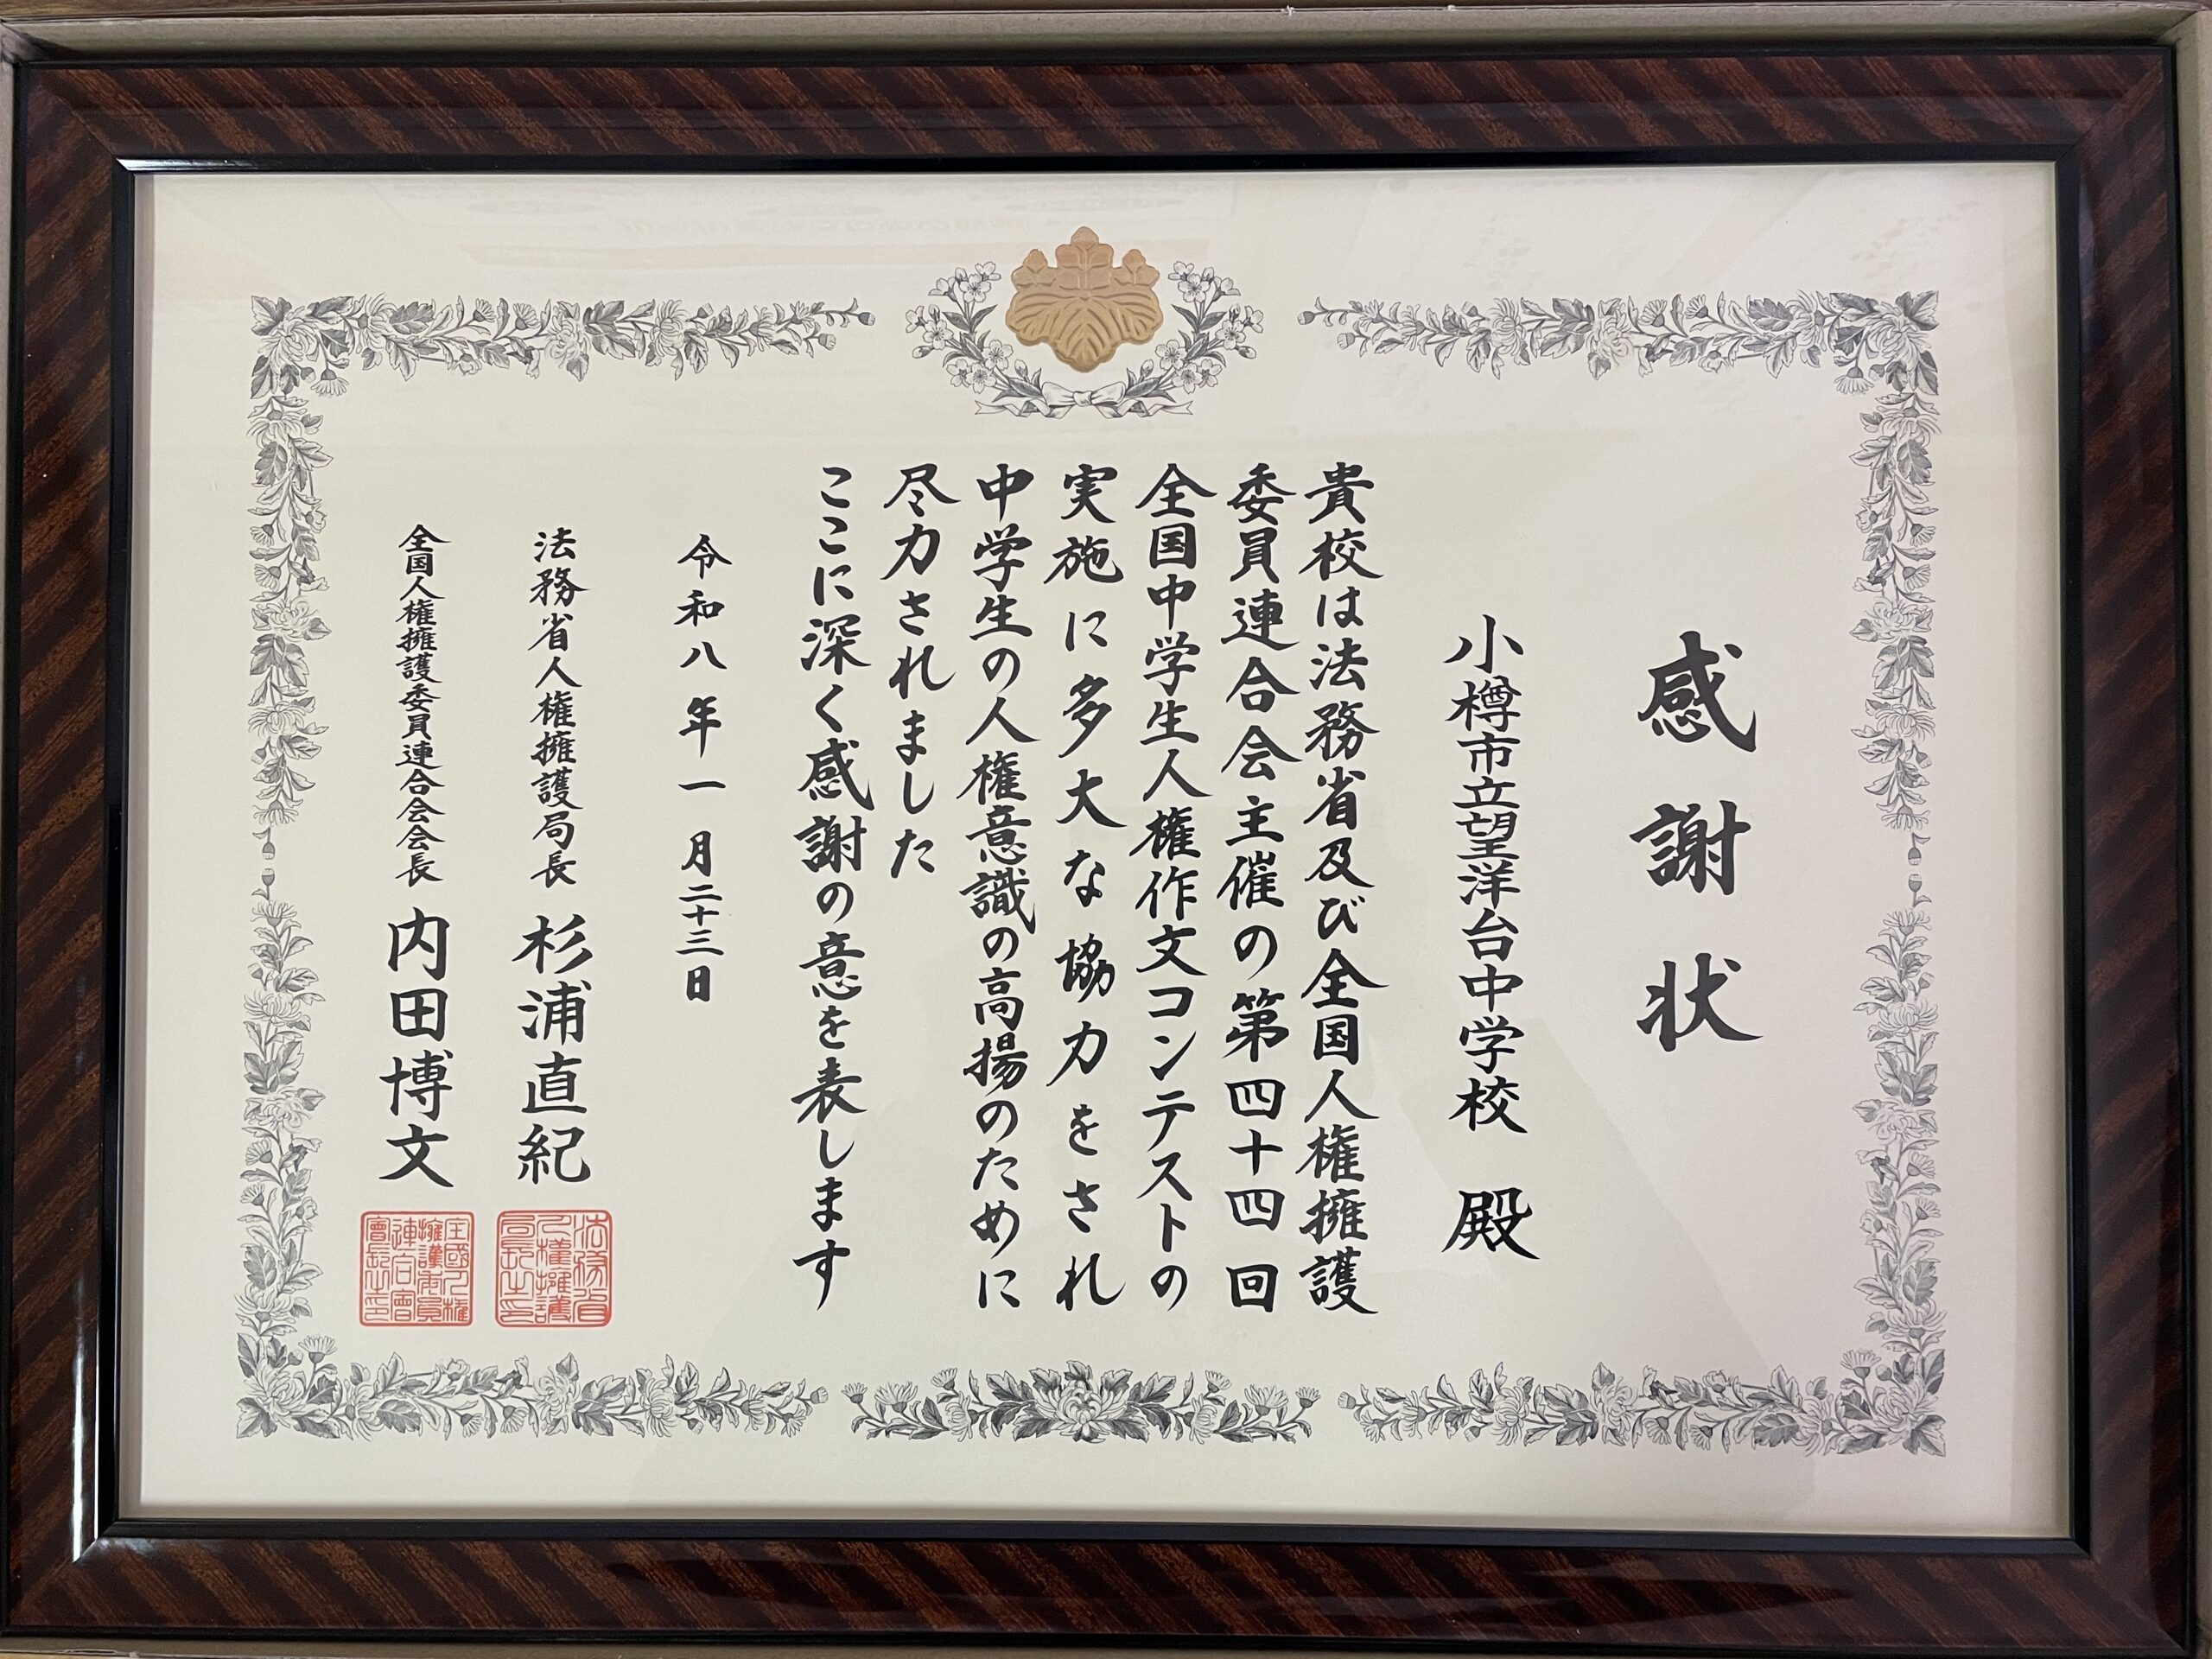 感謝状
小樽市立望洋台中学校 殿
貴校は法務省及び全国人権擁護
委員連合会主催の第四十四回
全国中学生人権作文コンテストの
実施に多大な協力をされ
中学生の人権意識の高揚のために
尽力されました
ここに深く感謝の意を表します
令和八年一月二十三日
法務省人権擁護局長 杉浦直紀
全国人権擁護委員連合会会長 内田博文
法務省人権擁護局長之印
全國人権擁護委員連合會會長之印